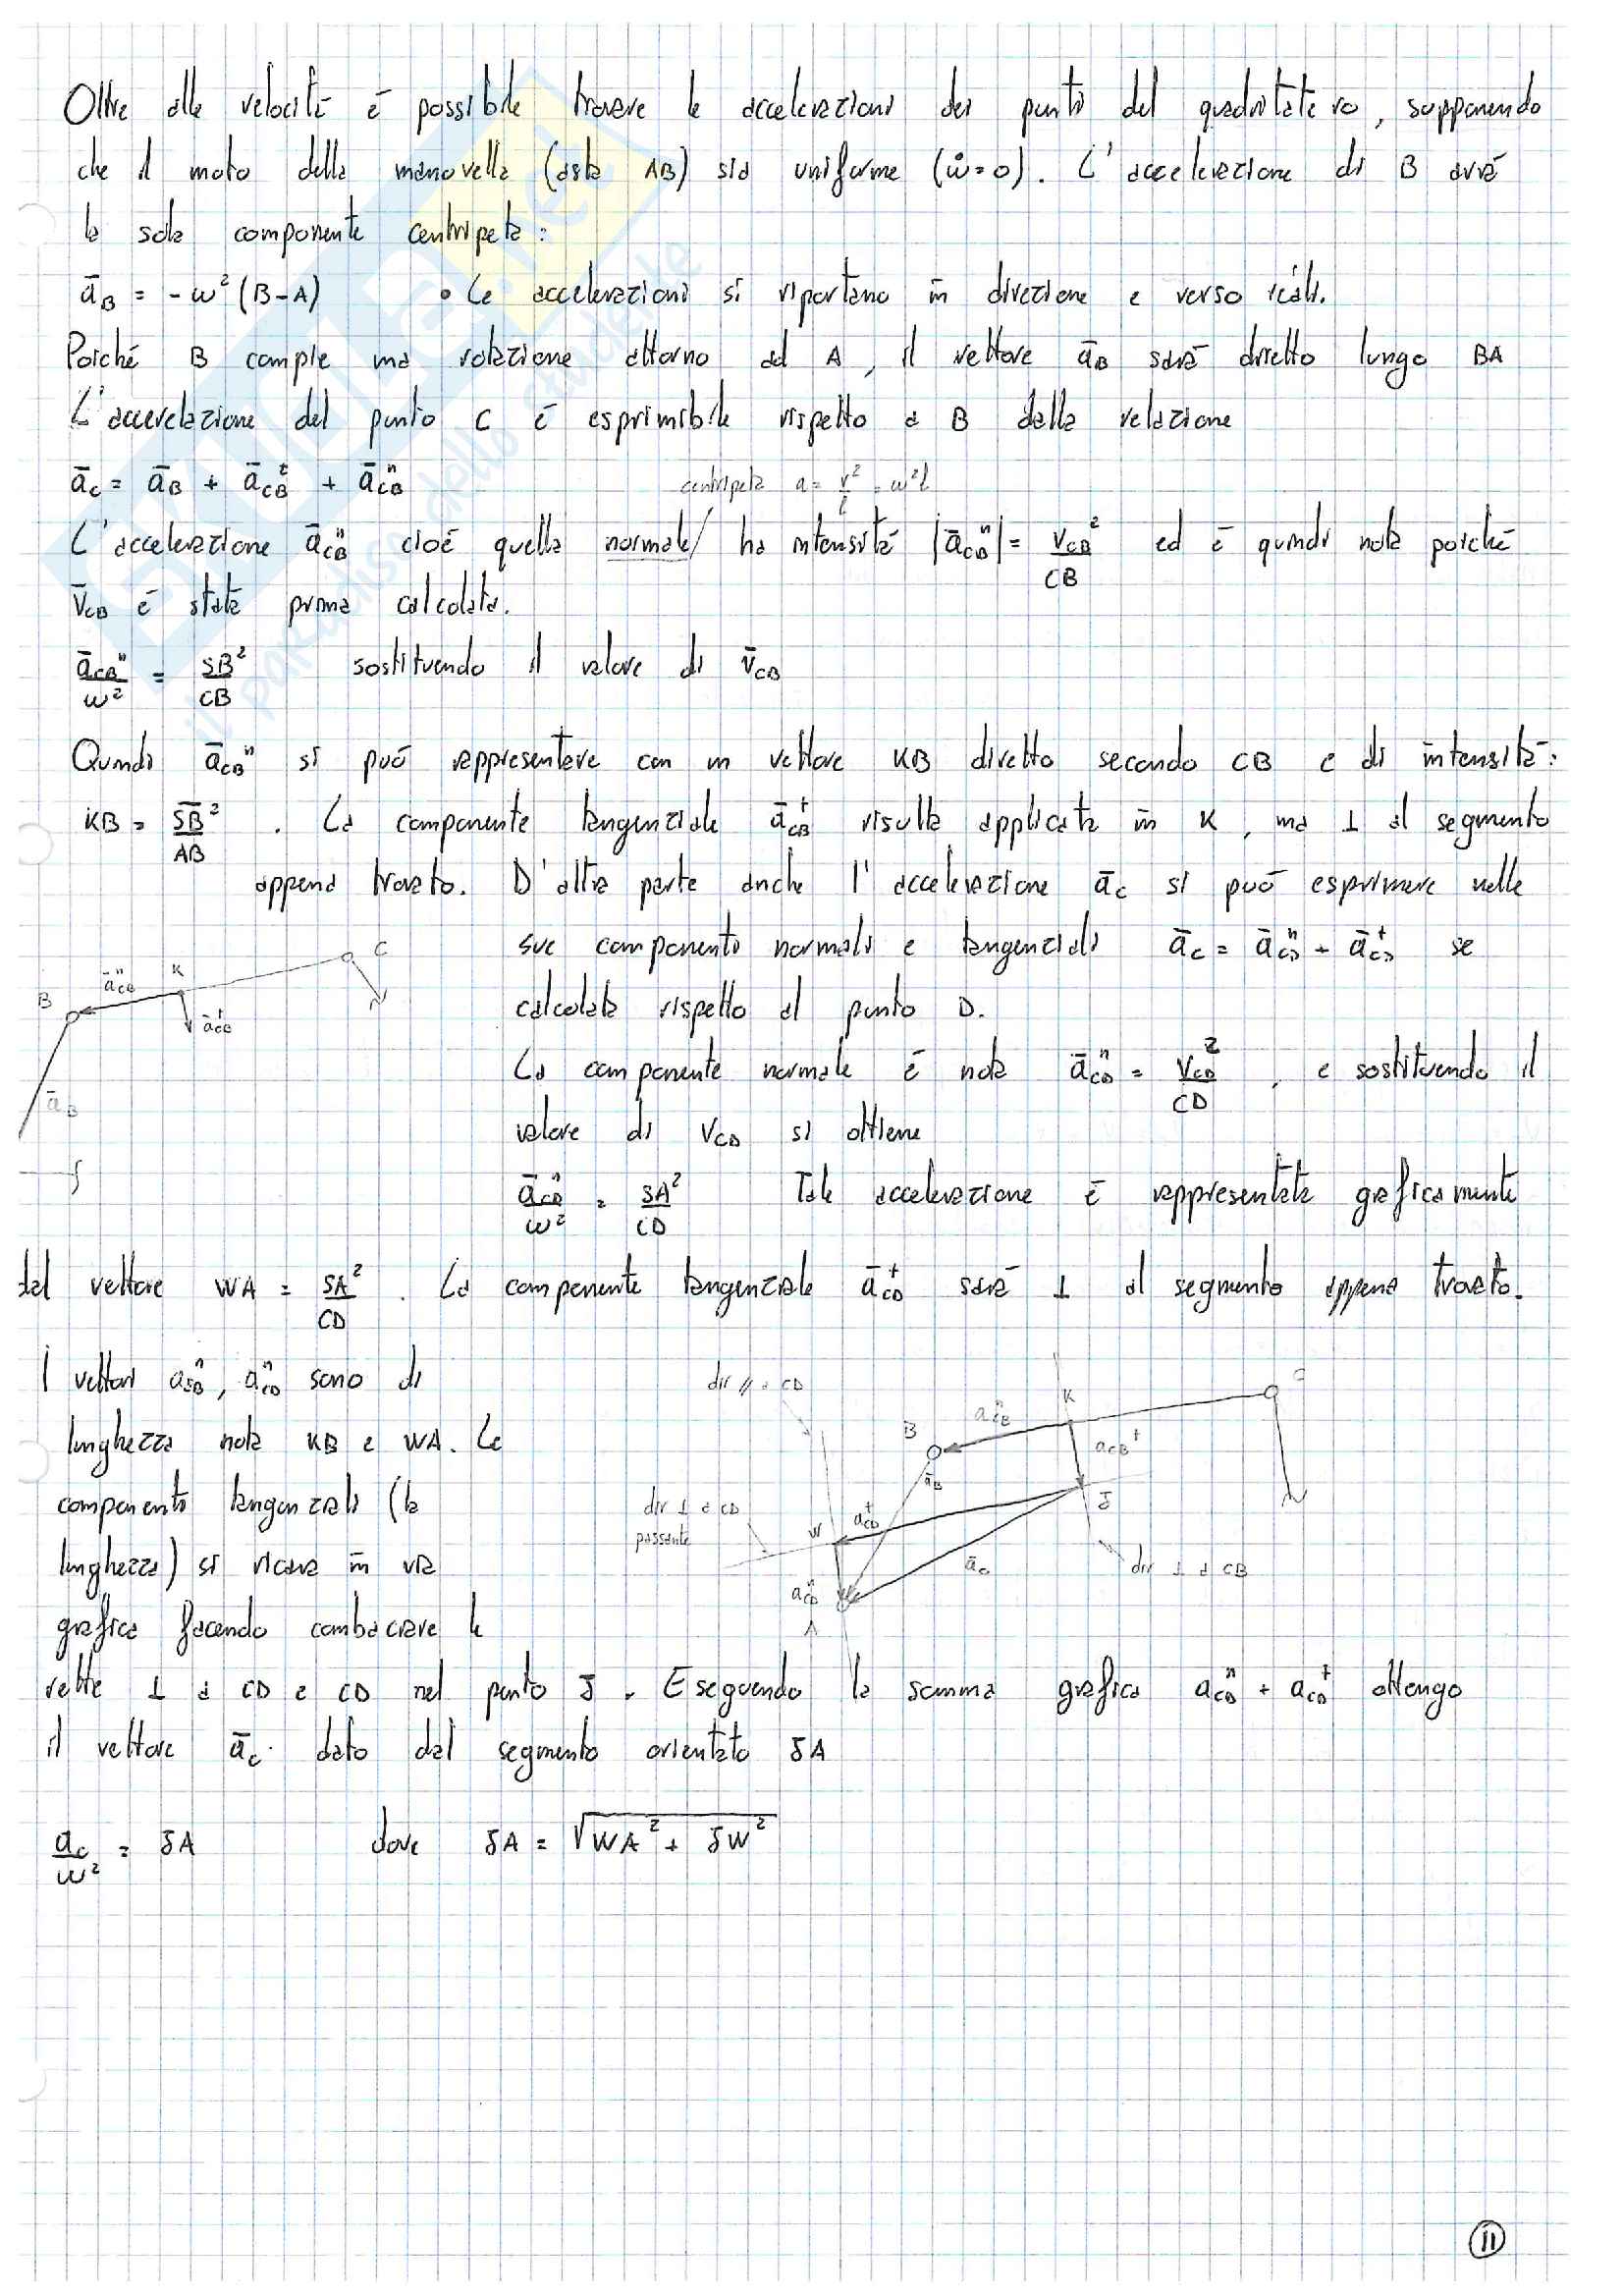 Oltre alle velocità è possibile trovare le accelerazioni dei punti del quadrilatero, supponendo
che il moto della manovella (asta AB) sia uniforme (ω̇=0). L'accelerazione di B avrà
la sola componente centripeta:
ā_B = -ω² (B-A) • Le accelerazioni si riportano in direzione e verso reali.
Poiché B compie una rotazione attorno ad A, il vettore ā_B sarà diretto lungo BA
L'accerelazione del punto C è esprimibile rispetto a B dalla relazione
ā_C = ā_B + ā_CB^t + ā_CB^n
centripeta a = v²/l = ω²l
L'accelerazione ā_CB^n cioè quella normale/ ha intensità |ā_CB^n| = v_CB²/CB ed è quindi nota poiché
v̄_CB è stata prima calcolata.
ā_CB^n/ω² = SB²/CB sostituendo il valore di v̄_CB
Quindi ā_CB^n si può rappresentare con un vettore KB diretto secondo CB e di intensità:
KB = SB²/AB . La componente tangenziale ā_CB^t risulta applicata in K, ma ⊥ al segmento
appena trovato. D'altra parte anche l'accelerazione ā_C si può esprimere nelle
sue componenti normali e tangenziali ā_C = ā_CD^n + ā_CD^t se
calcolata rispetto al punto D.
B ā_CB^n K C
ā_CB^t
ā_B
La componente normale è nota ā_CD^n = v_CD²/CD , e sostituendo il
valore di v_CD si ottiene
ā_CD^n/ω² = SA²/CD Tale accelerazione è rappresentata graficamente
dal vettore WA = SA²/CD . La componente tangenziale ā_CD^t sarà ⊥ al segmento appena trovato.
I vettori a_SB^n, a_CD^n sono di
lunghezza nota KB e WA. Le
componenti tangenziali (la
lunghezza) si ricava in via
grafica facendo combaciare le
dir // a CD
B a_CB^n K C
a_CB^t
ā_B
dir ⊥ a CD
passante
W a_CD^t J
a_CD^n ā_C dir ⊥ a CB
A
rette ⊥ a CD e CD nel punto J. Eseguendo la somma grafica a_CD^n + a_CD^t ottengo
il vettore ā_C dato dal segmento orientato JA
a_C/ω² = JA dove JA = √(WA² + JW²)
11